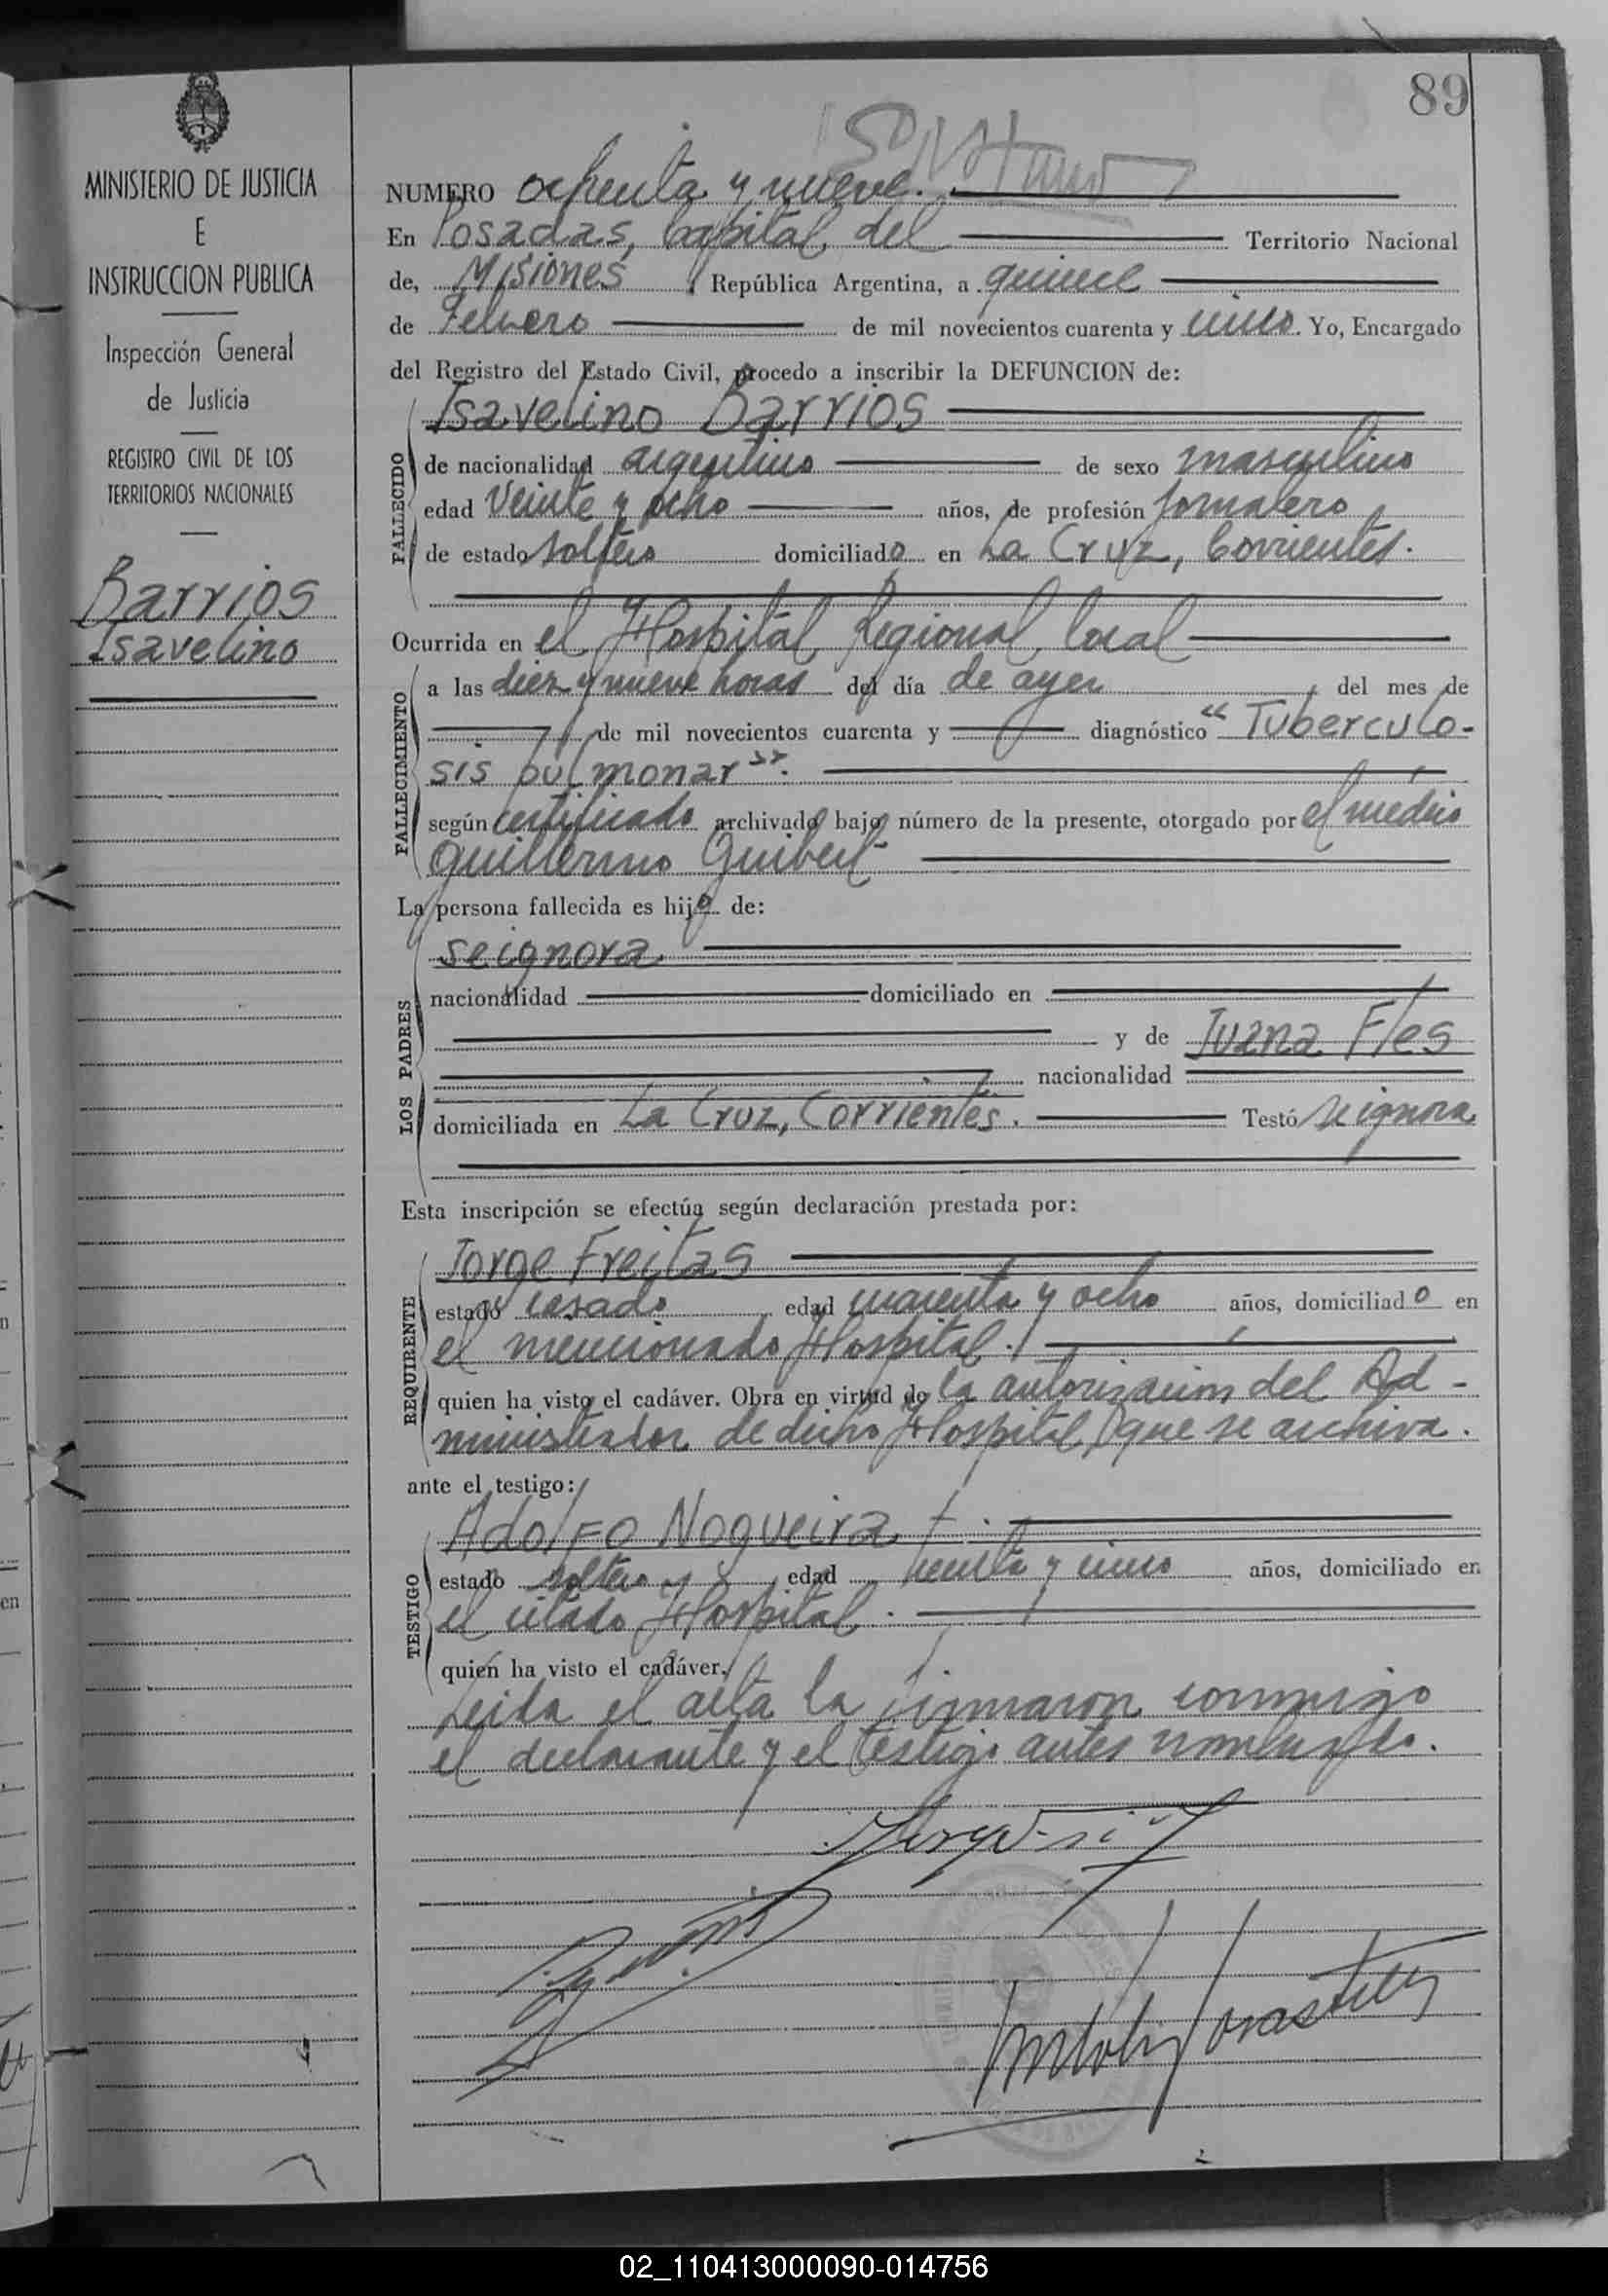 89
MINISTERIO DE JUSTICIA
E
INSTRUCCION PUBLICA
Inspección General
de Justicia
REGISTRO CIVIL DE LOS
TERRITORIOS NACIONALES
Barrios
Isavelino
NUMERO ochenta y nueve.
En Posadas, Capital del Territorio Nacional
de, Misiones República Argentina, a quince
de Febrero de mil novecientos cuarenta y cinco. Yo, Encargado
del Registro del Estado Civil, procedo a inscribir la DEFUNCION de:
Isavelino Barrios
FALLECIDO
de nacionalidad argentino de sexo masculino
edad veinte y ocho años, de profesión jornalero
de estado soltero domiciliado en La Cruz, Corrientes.
Ocurrida en el Hospital Regional local
FALLECIMIENTO
a las diez y nueve horas del día de ayer, del mes de
de mil novecientos cuarenta y diagnóstico "Tuberculo-
sis pulmonar".
según certificado archivado bajo número de la presente, otorgado por el médico
Guillermo Guibert
La persona fallecida es hijo de:
LOS PADRES
se ignora
nacionalidad domiciliado en
y de Juana Fles
nacionalidad
domiciliada en La Cruz, Corrientes. Testó se ignora
Esta inscripción se efectúa según declaración prestada por:
REQUIRENTE
Jorge Freitas
estado casado edad cuarenta y ocho años, domiciliado en
el mencionado Hospital.
quien ha visto el cadáver. Obra en virtud de la autorizacion del Ad-
ministrador de dicho Hospital, que se archiva.
ante el testigo:
TESTIGO
Adolfo Nogueira
estado soltero edad treinta y cinco años, domiciliado en
el citado Hospital.
quien ha visto el cadáver.
Leida el acta la firmaron conmigo
el declarante y el testigo antes nombrado.
02_110413000090-014756